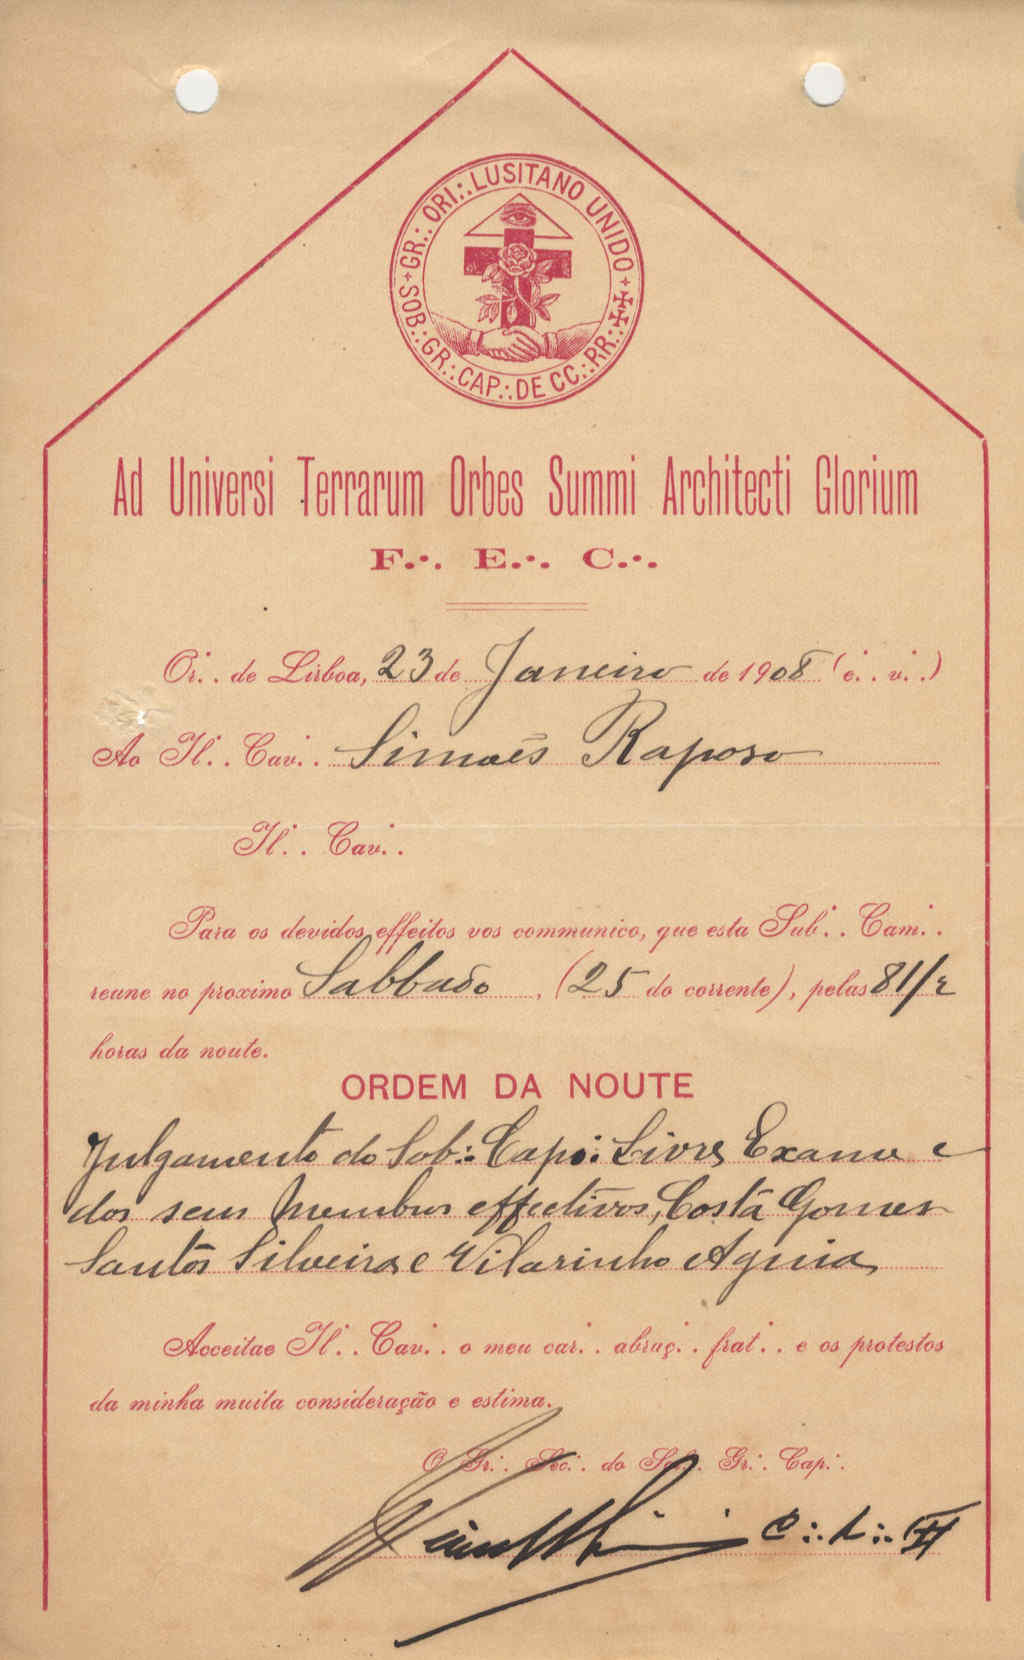 GR∴ ORI∴ LUSITANO UNIDO
SOB∴ GR∴ CAP∴ DE CC∴ RR∴ ✠✠
Ad Universi Terrarum Orbes Summi Architecti Glorium
F∴ E∴ C∴
Or∴ de Lisboa, 23 de Janeiro de 1908 (e∴ v∴)
Ao Il∴ Cav∴ Simões Raposo
Il∴ Cav∴
Para os devidos effeitos vos communico, que esta Sub∴ Cam∴
reune no proximo Sabbado, (25 do corrente), pelas 8 1/2
horas da noute.
ORDEM DA NOUTE
Julgamento do Sob∴ Cap∴ Livre Exame e
dos seus membros effectivos, Costa Gomes
Santos Silveira e Vilarinho Aguia
Acceitae Il∴ Cav∴ o meu car∴ abraç∴ frat∴ e os protestos
da minha muita consideração e estima.
O Gr∴ Sec∴ do Sob∴ Gr∴ Cap∴